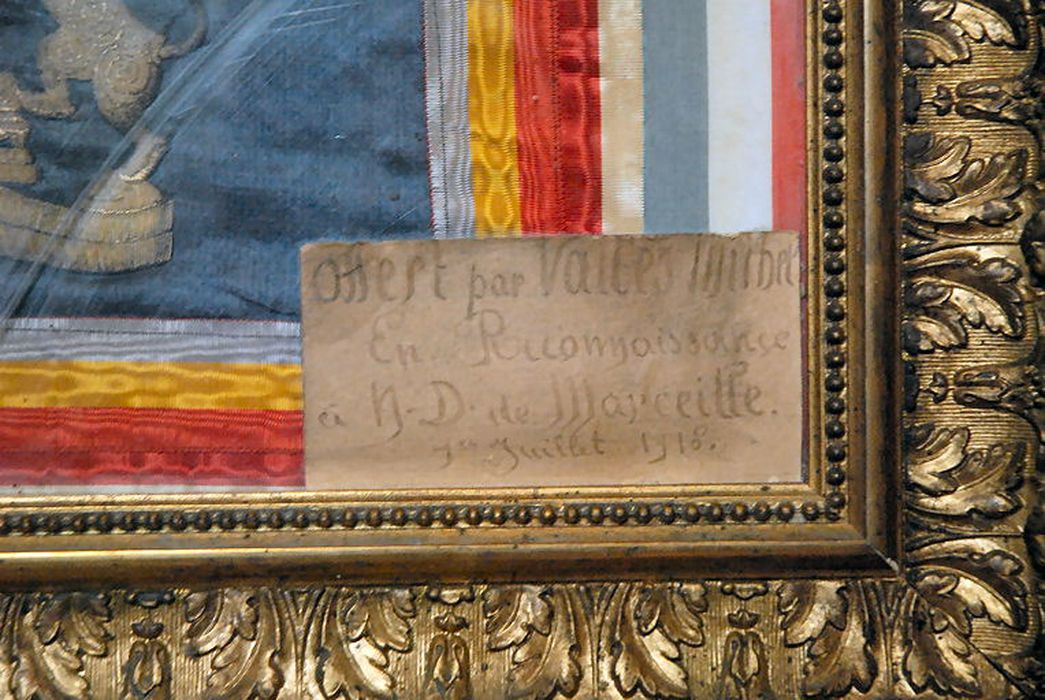 Offert par Valles Michel
En Reconnaissance
à N.-D. de Marceille.
Juillet 1918.